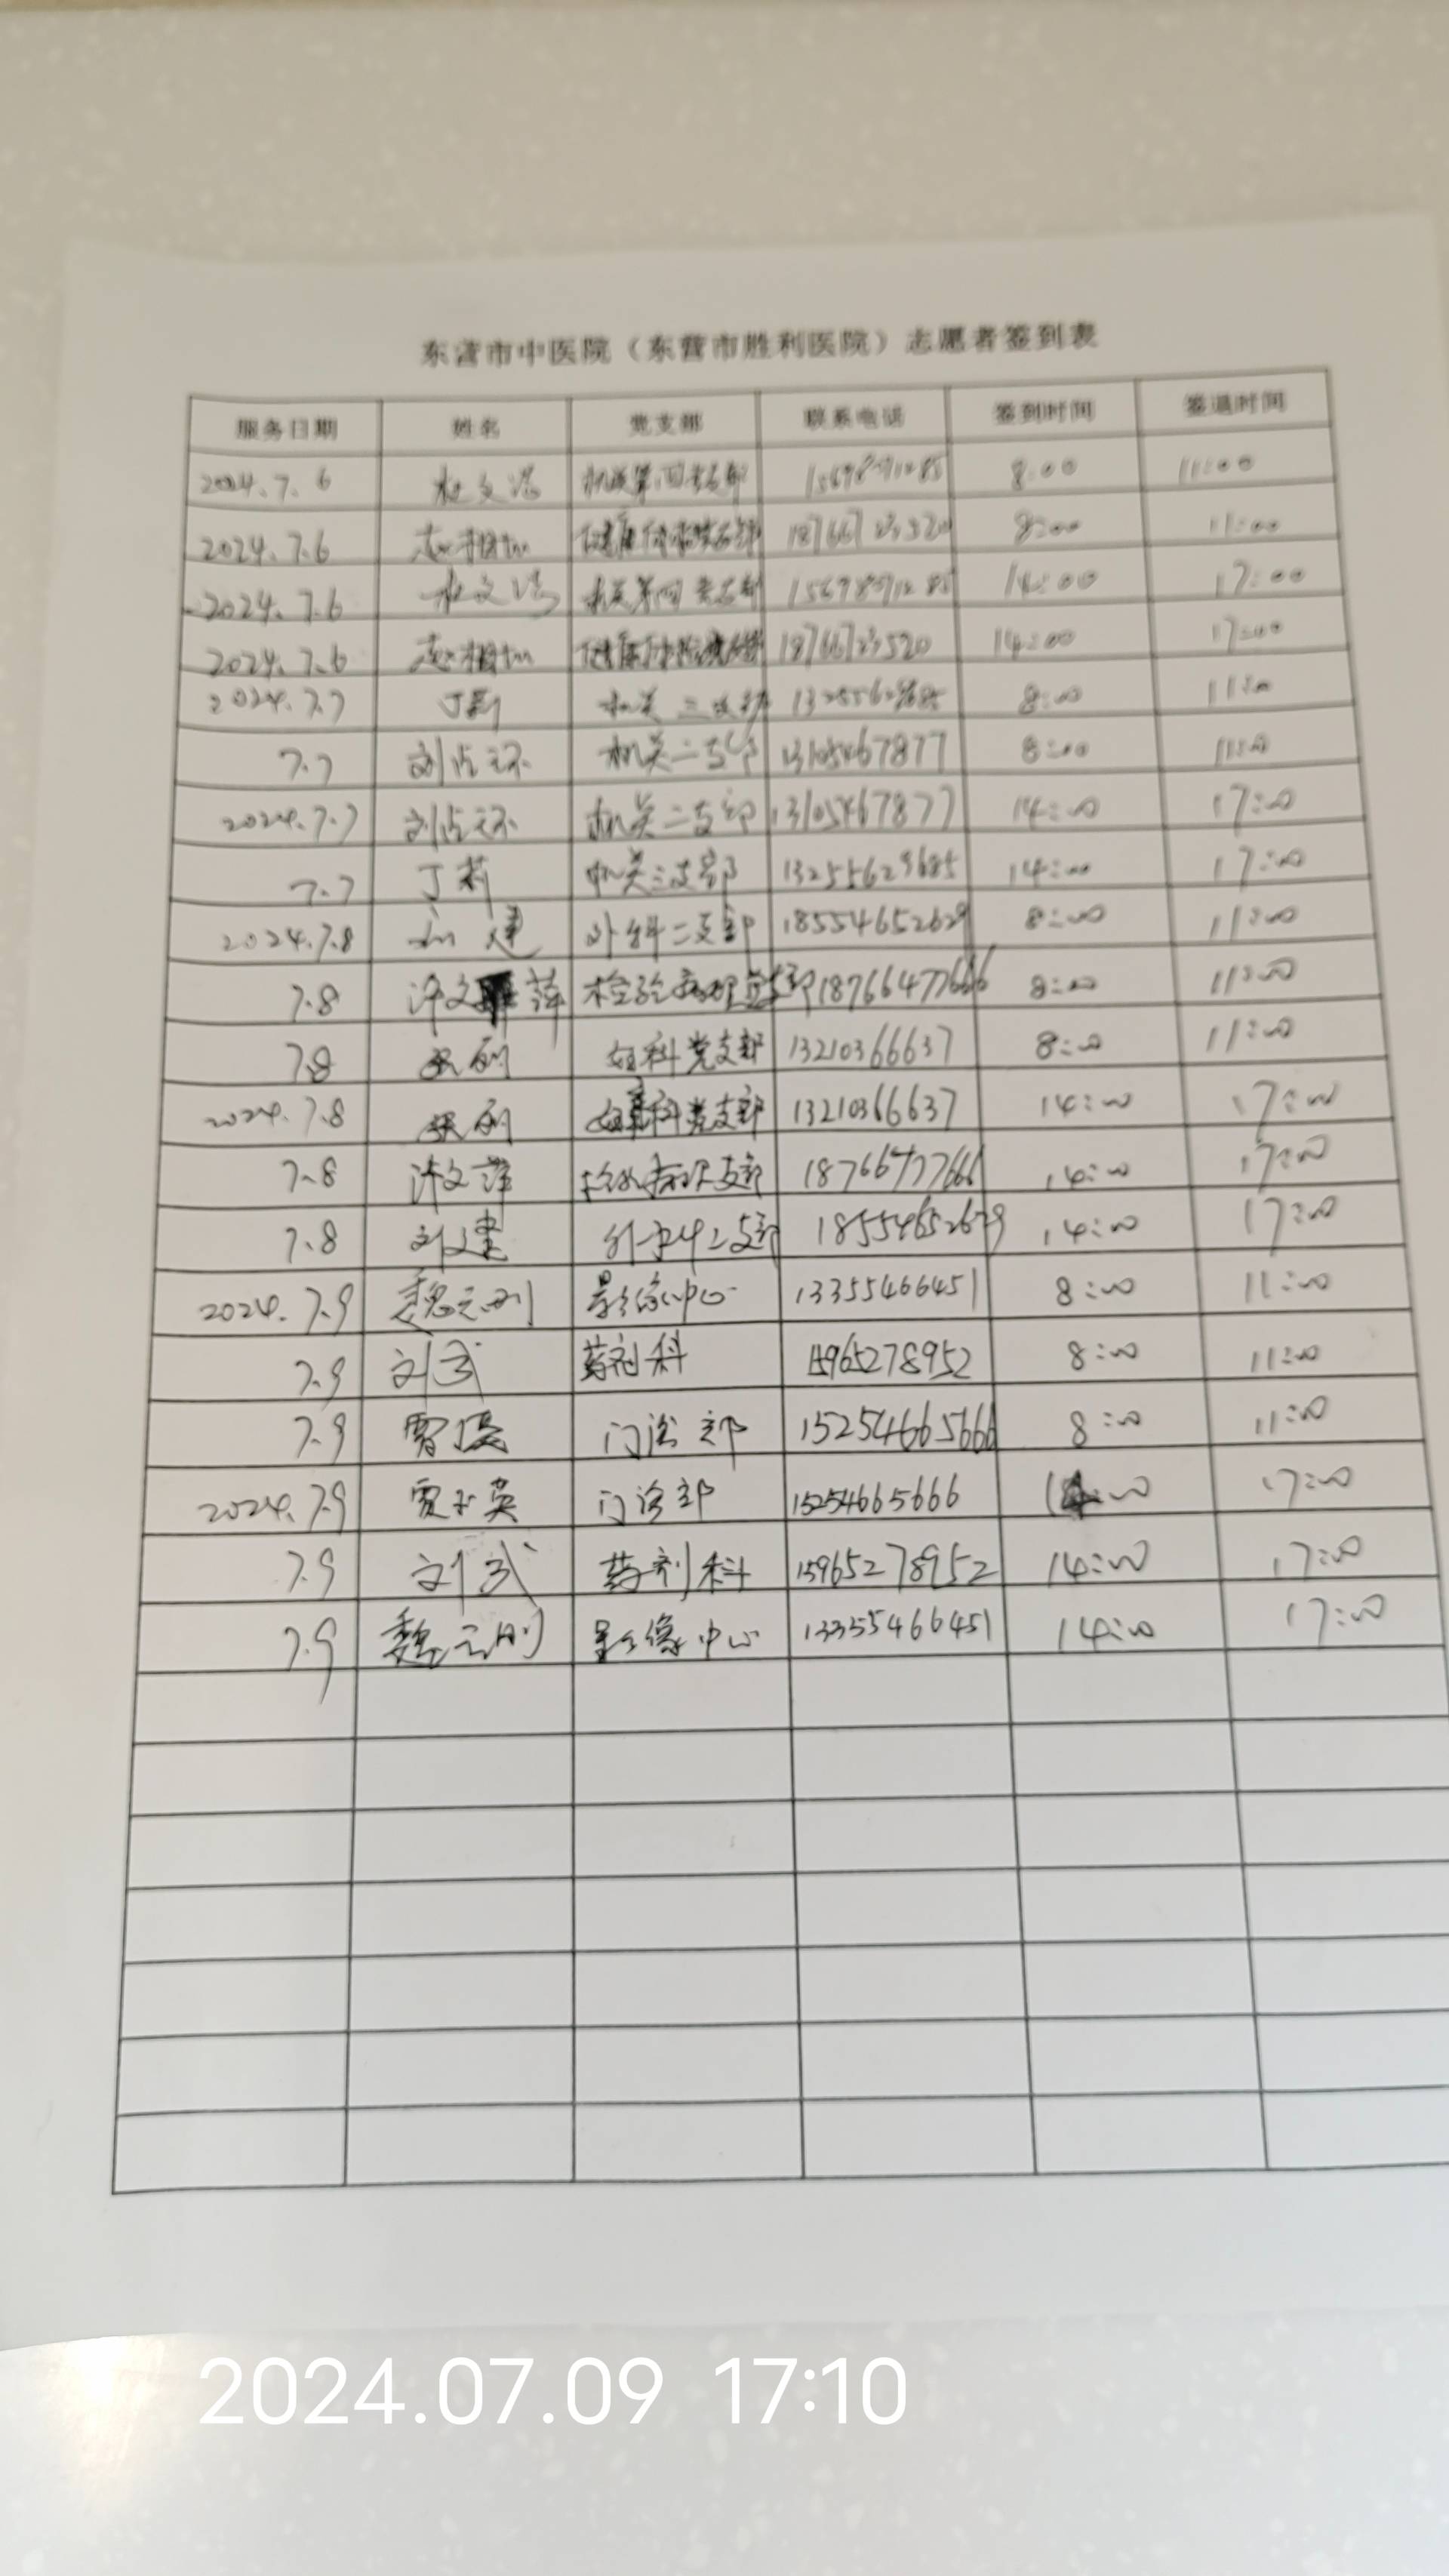 东营市中医院（东营市胜利医院）志愿者签到表
服务日期 姓名 党支部 联系电话 签到时间 签退时间
2024.7.6 杜文 机关第四支部 8:00 11:00
2024.7.6 赵 8:00 11:00
2024.7.6 杜文 机关第四支部 14:00 17:00
2024.7.6 赵 14:00 17:00
2024.7.7 丁莉 机关三支部 13255629685 8:00 11:00
7.7 刘 机关二支部 13105467877 8:00 11:00
2024.7.7 刘 机关二支部 13105467877 14:00 17:00
7.7 丁莉 机关三支部 13255629685 14:00 17:00
2024.7.8 刘建 外科二支部 8:00 11:00
7.8 许文萍 检验病理支部 18766477666 8:00 11:00
7.8 科党支部 13210366637 8:00 11:00
2024.7.8 科党支部 13210366637 14:00 17:00
7.8 许文萍 检验病理支部 18766477666 14:00 17:00
7.8 刘建 外科二支部 14:00 17:00
2024.7.9 魏元刚 影像中心 13355466451 8:00 11:00
7.9 刘武 药剂科 15965278952 8:00 11:00
7.9 贾 门诊部 15254665666 8:00 11:00
2024.7.9 贾玉英 门诊部 15254665666 14:00 17:00
7.9 刘武 药剂科 15965278952 14:00 17:00
7.9 魏元刚 影像中心 13355466451 14:00 17:00
2024.07.09 17:10